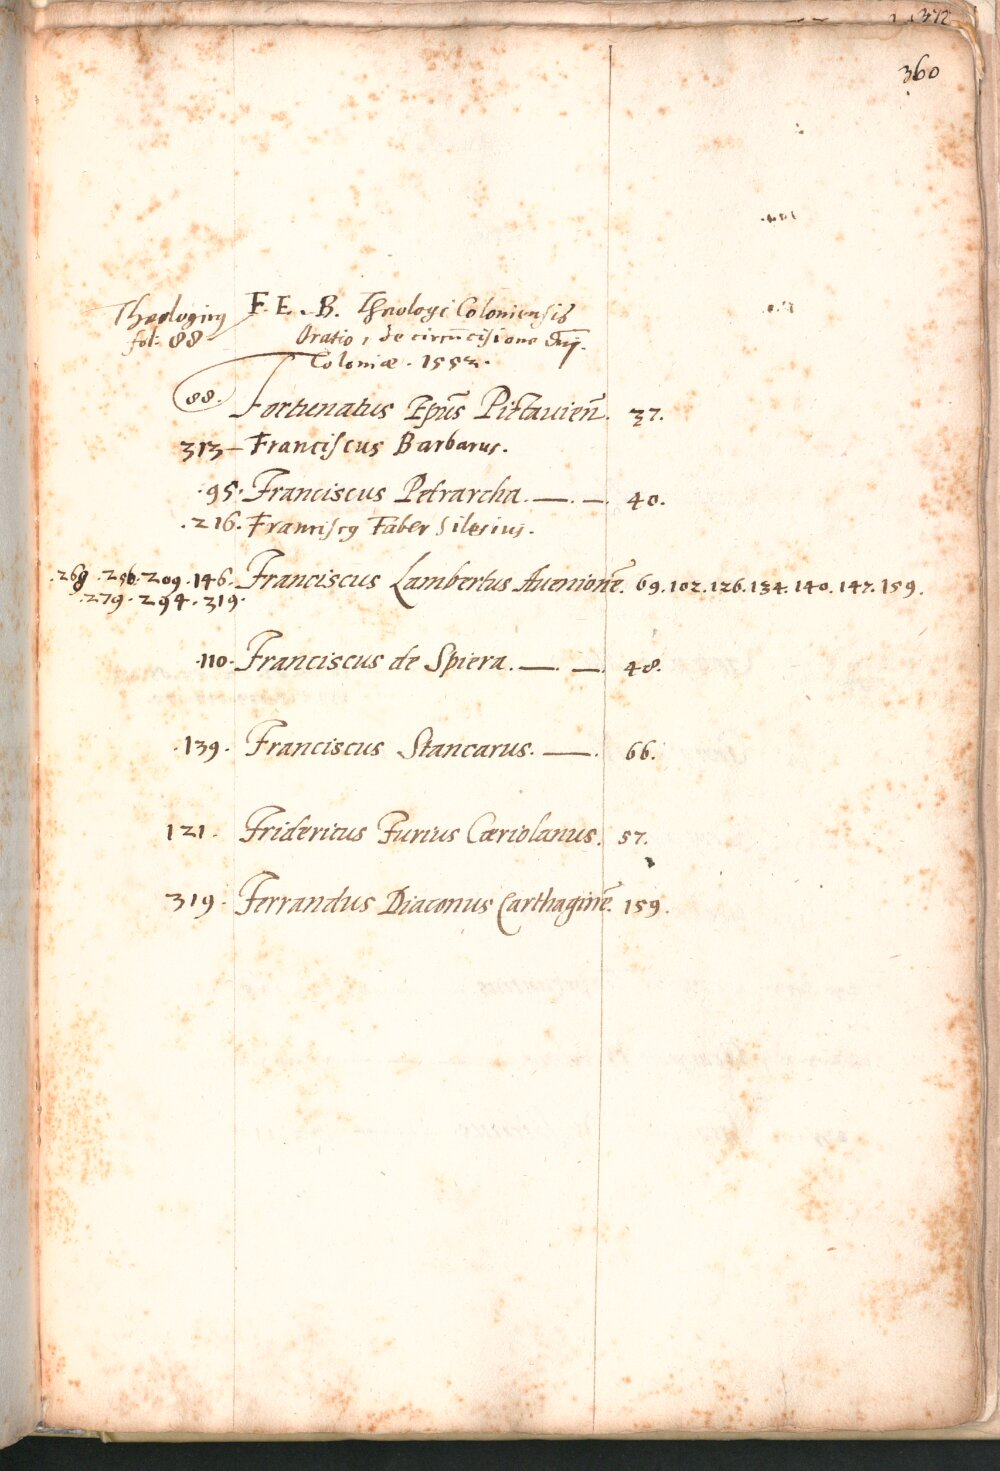 372
360
Theologicus F. E. B. Theologi Coloniensis
fol. 88 Oratio, de circūcisione Dnj.
Coloniæ. 1552.
88. Fortunatus Ep̄us Pictauien̄. 37.
313 – Franciscus Barbarus.
95. Franciscus Petrarcha. — . — 40.
.216. Franciscꝰ Faber Silesius.
.268 .256. 209 .146. Franciscus Lambertus Auenionē. 69. 102. 126. 134. 140. 147. 159.
.279. 294. 319.
.110. Franciscus de Spiera. — . — . 48.
.139. Franciscus Stancarus. — . 66.
121. Fridericus Furius Cæriolanus. 57.
319. Ferrandus Diaconus Carthaginē. 159.